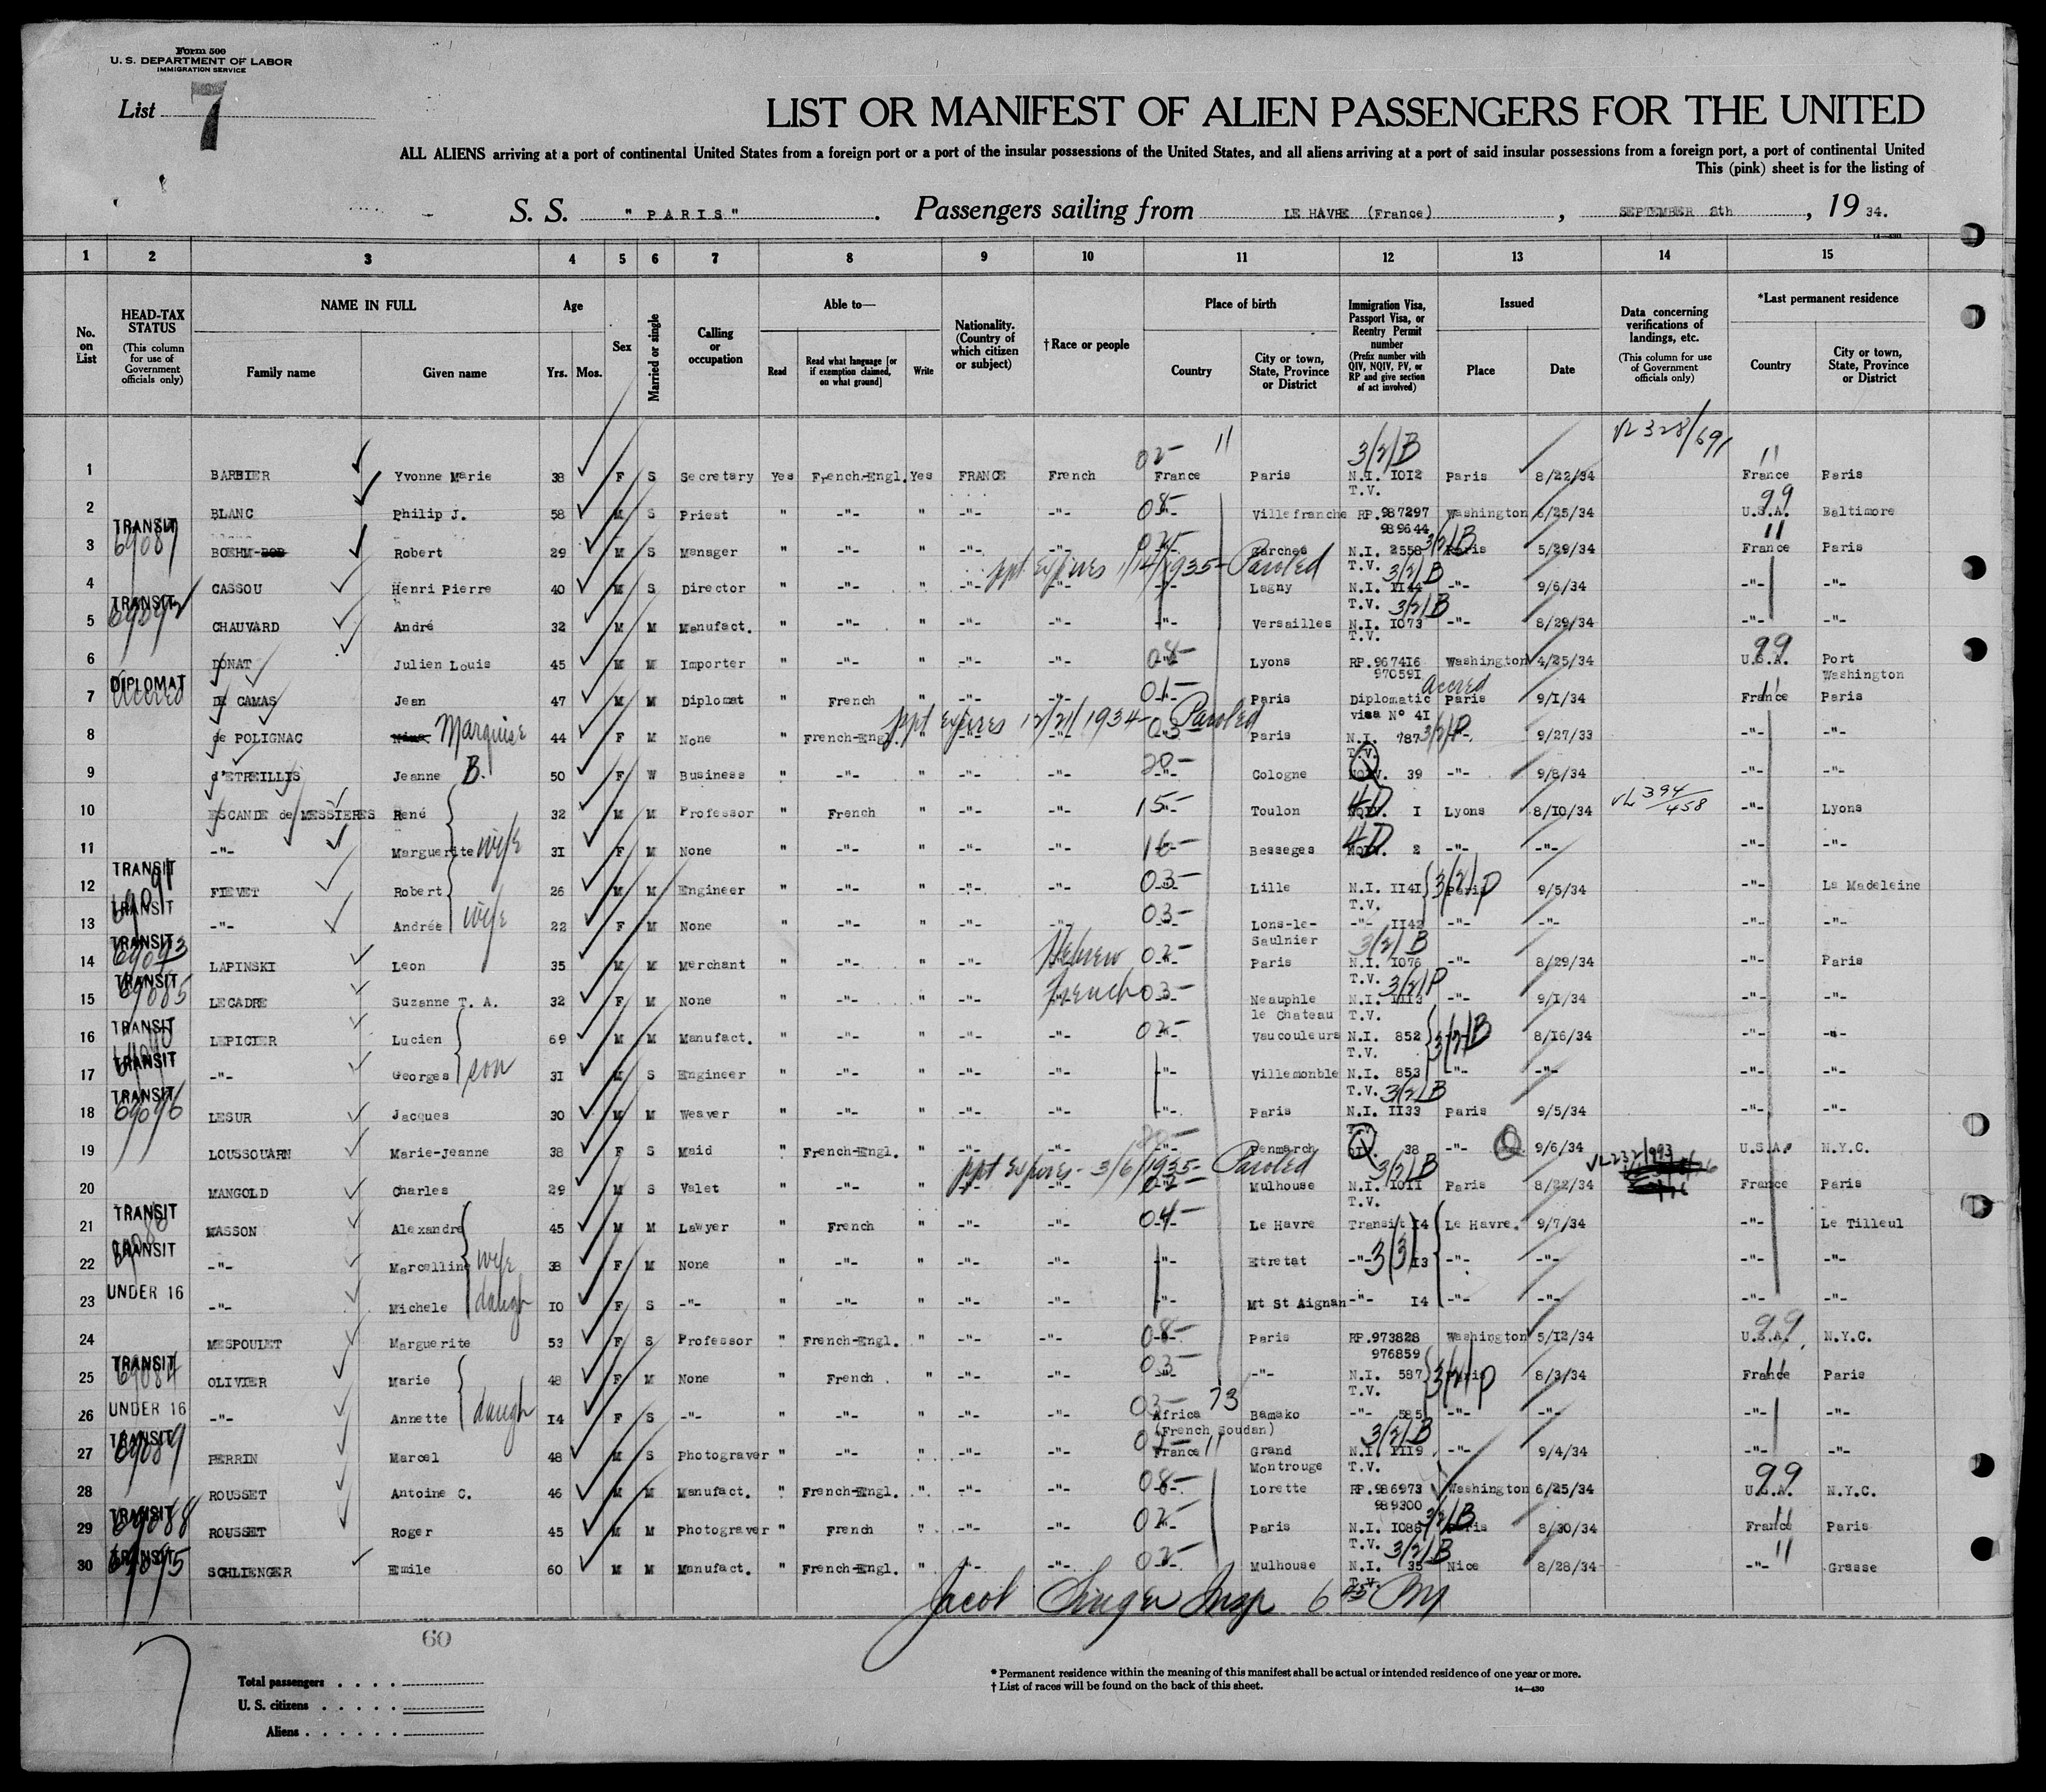 Form 500
U. S. DEPARTMENT OF LABOR
IMMIGRATION SERVICE
List 7
LIST OR MANIFEST OF ALIEN PASSENGERS FOR THE UNITED
ALL ALIENS arriving at a port of continental United States from a foreign port or a port of the insular possessions of the United States, and all aliens arriving at a port of said insular possessions from a foreign port, a port of continental United
This (pink) sheet is for the listing of
S. S. "PARIS". Passengers sailing from LE HAVRE (France), SEPTEMBER 8th, 1934.
14—430
1 2 3 4 5 6 7 8 9 10 11 12 13 14 15
No. on List
HEAD-TAX STATUS (This column for use of Government officials only)
NAME IN FULL Family name Given name
Age Yrs. Mos.
Sex
Married or single
Calling or occupation
Able to— Read Read what language [or if exemption claimed, on what ground] Write
Nationality. (Country of which citizen or subject)
†Race or people
Place of birth Country City or town, State, Province or District
Immigration Visa, Passport Visa, or Reentry Permit number (Prefix number with QIV, NQIV, PV, or RP and give section of act involved)
Issued Place Date
Data concerning verifications of landings, etc. (This column for use of Government officials only)
*Last permanent residence Country City or town, State, Province or District
02- 11 3/2/B VL 328/691 11
1 BARBIER Yvonne Marie 38 F S Secretary Yes French-Engl. Yes FRANCE French France Paris N.I. 1012 T.V. Paris 8/22/34 France Paris
2 BLANC Philip J. 58 M S Priest " -"- " -"- -"- 08- -"- Villefranche RP.987297 989644 Washington 6/25/34 99 U.S.A. Baltimore
3 TRANSIT 69087 BOEHM-BOB Robert 29 M S Manager " -"- " -"- -"- 02- -"- Garches N.I. 2558 T.V. 3/2/B Paris 5/29/34 11 France Paris
ppt expires 1/14/1935- Paroled
4 CASSOU Henri Pierre 40 M S Director " -"- " -"- -"- -"- Lagny N.I. 1144 T.V. 3/2/B -"- 9/6/34 -"- -"-
5 TRANSIT 69092 CHAUVARD André 32 M M Manufact. " -"- " -"- -"- -"- Versailles N.I. 1073 T.V. 3/2/B -"- 8/29/34 -"- -"-
6 DONAT Julien Louis 45 M M Importer " -"- " -"- -"- 08- -"- Lyons RP.967416 970591 Washington 4/25/34 99 U.S.A. Port Washington
7 DIPLOMAT Accred DE CAMAS Jean 47 M M Diplomat " French " -"- -"- 01- -"- Paris Diplomatic visa N° 41 Accred Paris 9/1/34 11 France Paris
ppt expires 12/21/1934- Paroled
8 de POLIGNAC Nina Marquise 44 F M None " French-Engl. " -"- -"- 03- Paris N.I. 787 T.V. 3/2/P -"- 9/27/33 -"- -"-
9 d'ETREILLIS Jeanne B. 50 F W Business " -"- " -"- -"- 20- -"- Cologne Q 39 -"- 9/8/34 -"- -"-
10 ESCANDE de MESSIERES René 32 M M Professor " French " -"- -"- 15- -"- Toulon 4D 1 Lyons 8/10/34 VL 394/458 -"- Lyons
11 -"- Marguerite wife 31 F M None " -"- " -"- -"- 16- -"- Besseges 4D 2 -"- -"- -"- -"-
12 TRANSIT 69091 FIEVET Robert 26 M M Engineer " -"- " -"- -"- 03- -"- Lille N.I. 1141 T.V. 3/2/P Paris 9/5/34 -"- La Madeleine
13 TRANSIT -"- Andrée wife 22 F M None " -"- " -"- -"- 03- -"- Lons-le-Saulnier -"- 1142 -"- -"- -"- -"-
14 TRANSIT 69093 LAPINSKI Leon 35 M M Merchant " -"- " -"- Hebrew 02- -"- Paris 3/2/B N.I. 1076 T.V. -"- 8/29/34 -"- Paris
15 TRANSIT 69085 LECADRE Suzanne T. A. 32 F M None " -"- " -"- French 03- -"- Neauphle le Chateau N.I. 1113 T.V. 3/2/P -"- 9/1/34 -"- -"-
16 TRANSIT LEPICIER Lucien 69 M M Manufact. " -"- " -"- -"- 02- -"- Vaucouleurs N.I. 852 T.V. 3/2/B -"- 8/16/34 -"- -"-
17 TRANSIT -"- Georges son 31 M S Engineer " -"- " -"- -"- -"- Villemonble N.I. 853 T.V. -"- -"- -"- -"-
18 TRANSIT 69096 LESUR Jacques 30 M M Weaver " -"- " -"- -"- -"- Paris 3/2/B N.I. 1133 T.V. Paris 9/5/34 -"- -"-
19 LOUSSOUARN Marie-Jeanne 38 F S Maid " French-Engl. " -"- -"- 20- -"- Penmarch Q 38 -"- Q 9/6/34 VL 232/993 U.S.A. N.Y.C.
ppt expires- 3/6/1935- Paroled
20 MANGOLD Charles 29 M S Valet " -"- " -"- -"- 02- -"- Mulhouse 3/2/B N.I. 1011 T.V. Paris 8/22/34 France Paris
21 TRANSIT MASSON Alexandre 45 M M Lawyer " French " -"- -"- 04- -"- Le Havre Transit 14 Le Havre. 9/7/34 -"- Le Tilleul
22 TRANSIT -"- Marcelline wife 38 F M None " -"- " -"- -"- -"- Etretat -"- 3/3/ 13 -"- -"- -"- -"-
23 UNDER 16 -"- Michele daugh 10 F S -"- " -"- " -"- -"- -"- Mt St Aignan -"- 14 -"- -"- -"- -"-
24 MESPOULET Marguerite 53 F S Professor " French-Engl. " -"- -"- 08- -"- Paris RP.973828 976859 Washington 5/12/34 99 U.S.A. N.Y.C.
25 TRANSIT 69084 OLIVIER Marie 48 F M None " French " -"- -"- 03- -"- -"- N.I. 587 T.V. 3/2/P Paris 8/3/34 11 France Paris
26 UNDER 16 -"- Annette daugh 14 F S -"- " -"- " -"- -"- 03- 73 Africa (French Soudan) Bamako -"- 585 -"- -"- -"- -"-
27 TRANSIT 69089 PERRIN Marcel 48 M S Photograver " -"- " -"- -"- 02- France 11 Grand Montrouge 3/2/B N.I. 1119 T.V. -"- 9/4/34 -"- -"-
28 ROUSSET Antoine C. 46 M M Manufact. " French-Engl. " -"- -"- 08- -"- Lorette RP.986973 989300 Washington 6/25/34 99 U.S.A. N.Y.C.
29 TRANSIT 69088 ROUSSET Roger 45 M M Photograver " French " -"- -"- 02- -"- Paris N.I. 1088 T.V. 3/2/B Paris 8/30/34 11 France Paris
30 TRANSIT 69095 SCHLIENGER Emile 60 M M Manufact. " French-Engl. " -"- -"- 02- -"- Mulhouse 3/2/B N.I. 35 T.V. Nice 8/28/34 11 -"- Grasse
Jacob Singer Insp
60
7
Total passengers
U. S. citizens
Aliens
* Permanent residence within the meaning of this manifest shall be actual or intended residence of one year or more.
† List of races will be found on the back of this sheet.
14—430